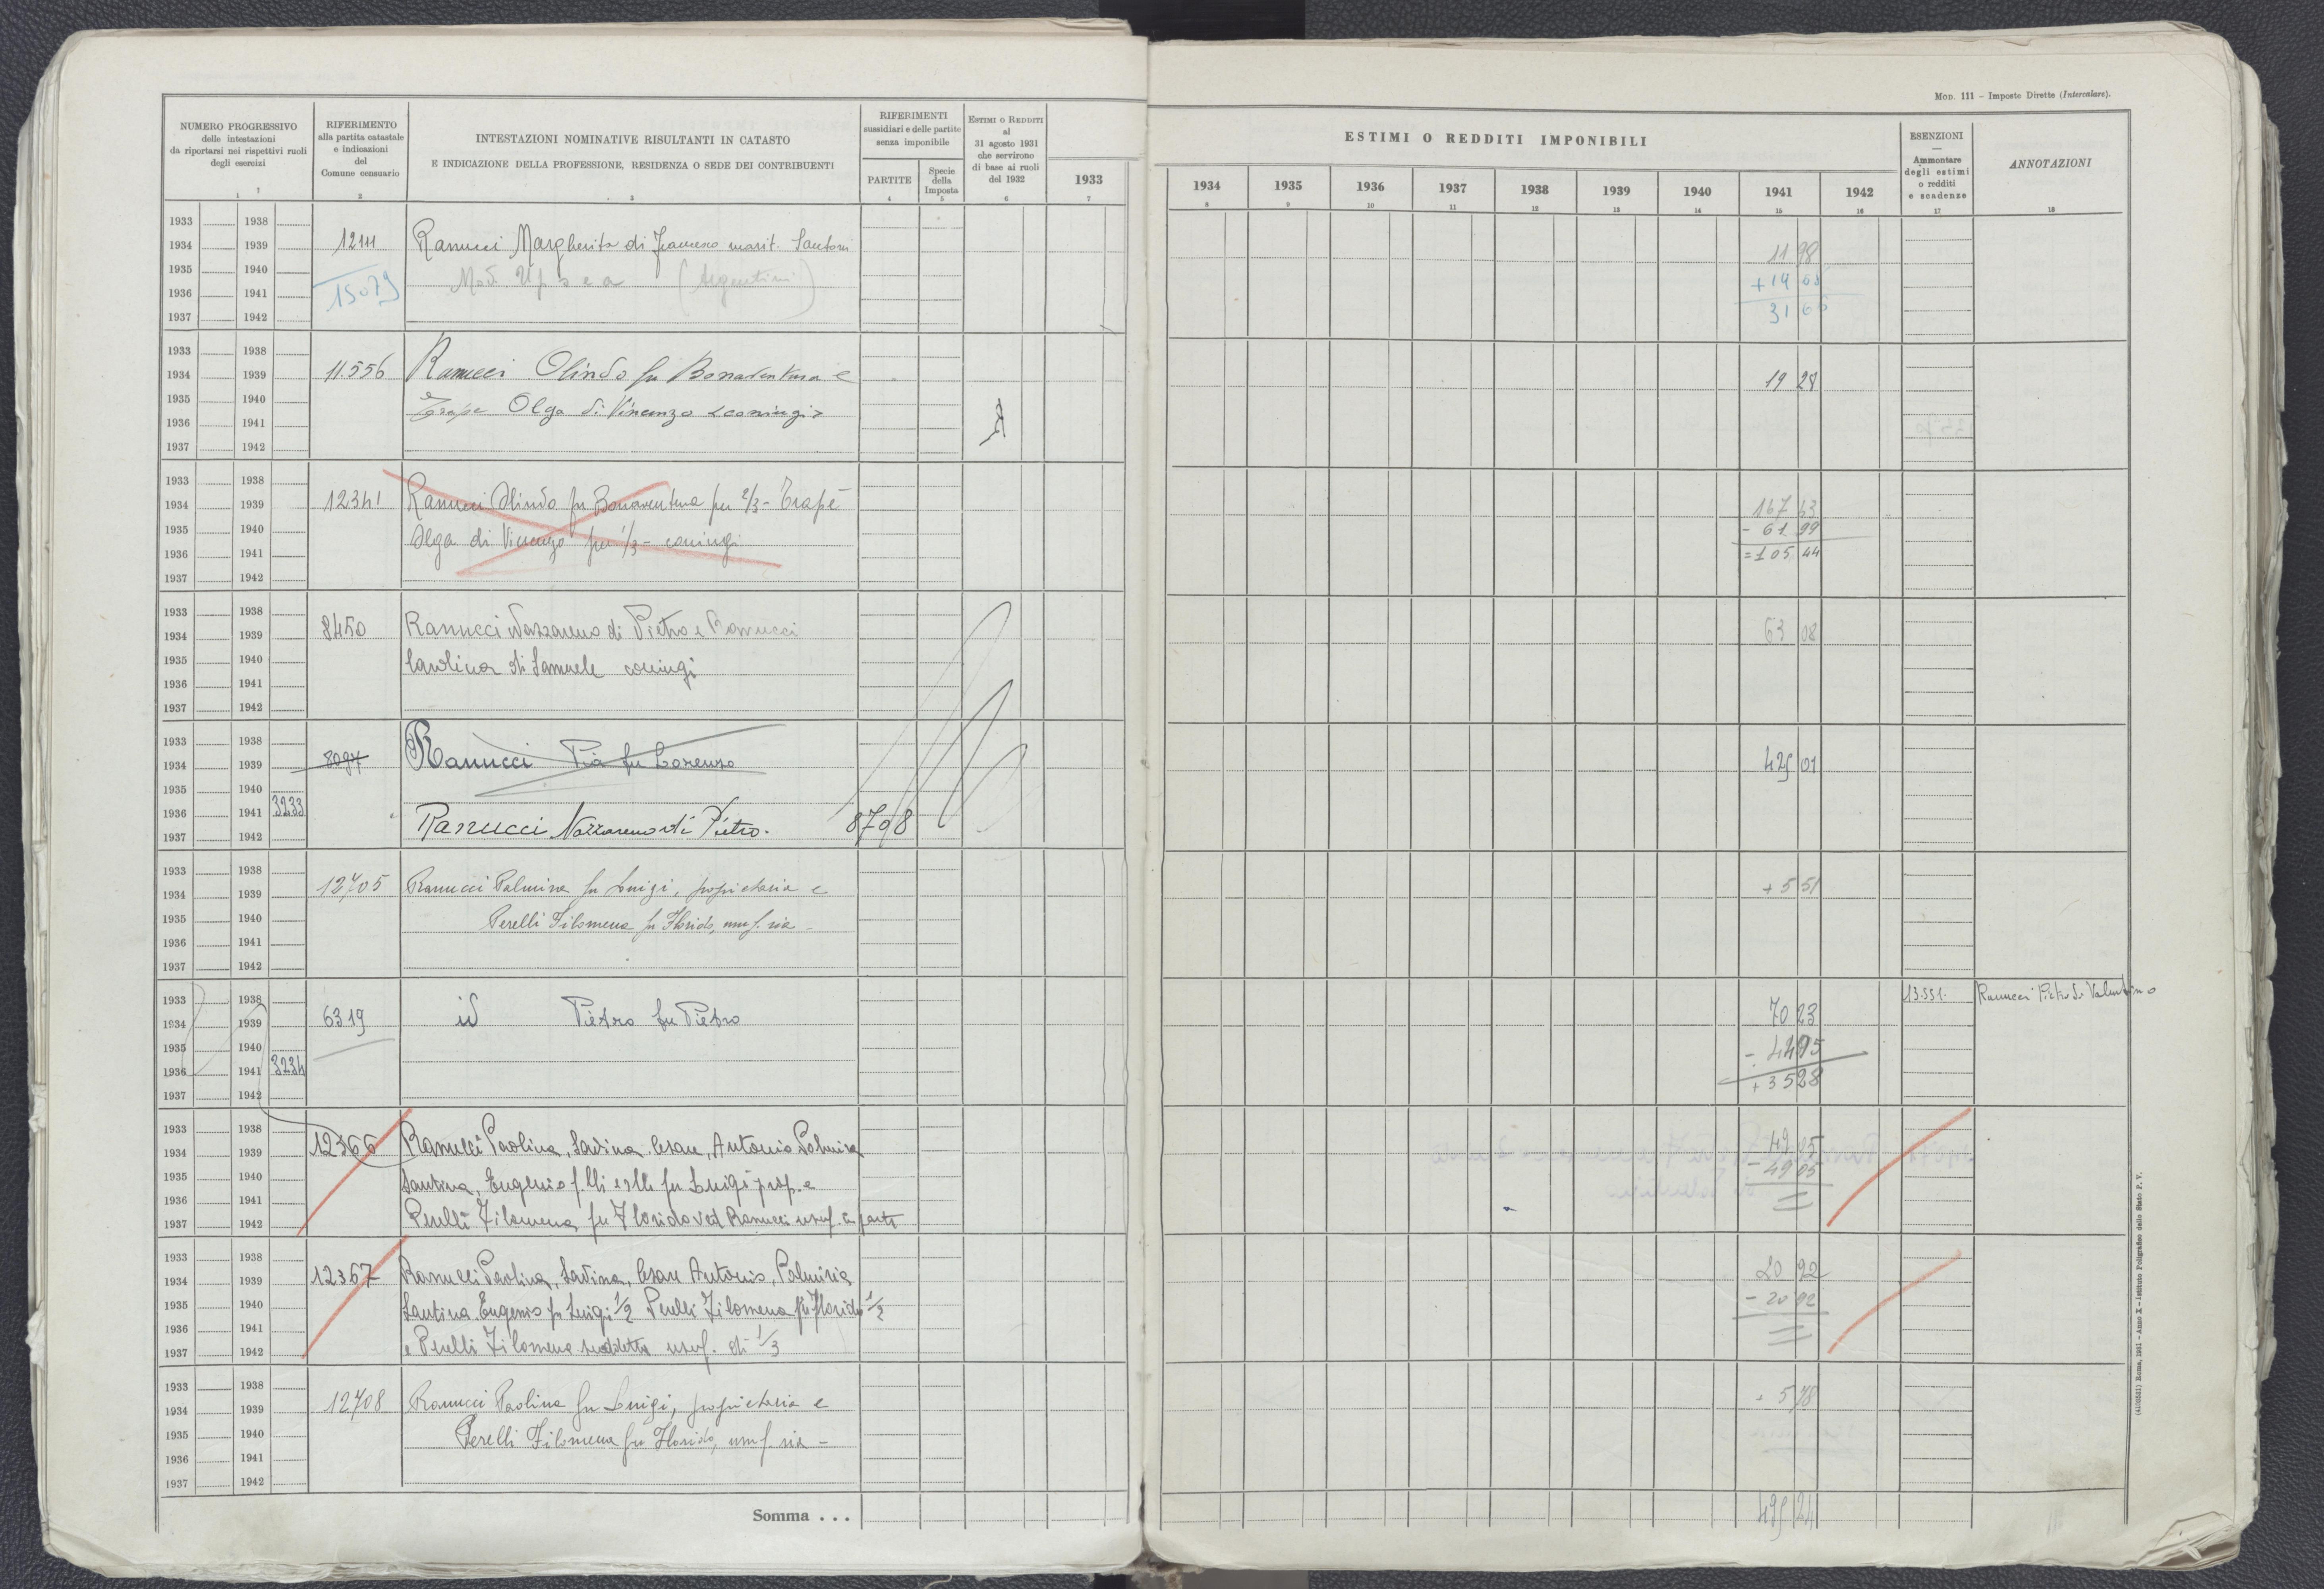 Mod. 111 – Imposte Dirette (Intercalare).
NUMERO PROGRESSIVO
delle intestazioni
da riportarsi nei rispettivi ruoli
degli esercizi
1
RIFERIMENTO
alla partita catastale
e indicazioni
del
Comune censuario
2
INTESTAZIONI NOMINATIVE RISULTANTI IN CATASTO
E INDICAZIONE DELLA PROFESSIONE, RESIDENZA O SEDE DEI CONTRIBUENTI
3
RIFERIMENTI
sussidiari e delle partite
senza imponibile
PARTITE
4
Specie
della
Imposta
5
ESTIMI O REDDITI
al
31 agosto 1931
che servirono
di base ai ruoli
del 1932
6
1933
7
ESTIMI O REDDITI IMPONIBILI
1934 1935 1936 1937 1938 1939 1940 1941 1942
8 9 10 11 12 13 14 15 16
ESENZIONI
—
Ammontare
degli estimi
o redditi
e scadenze
17
ANNOTAZIONI
18
1933 1938
1934 1939 12111 Ranucci Margherita di Francesco marit. Santoni 11 98
1935 1940 15079 (Argentini) + 19 68
1936 1941 31 66
1937 1942
1933 1938
1934 1939 11.556 Ranucci Olindo fu Bonaventura e 19 28
1935 1940 Trape Olga di Vincenzo <coniugi>
1936 1941
1937 1942
1933 1938
1934 1939 12341 Ranucci Olindo fu Bonaventura per 2/3 - Trapè 167 43
1935 1940 Olga di Vincenzo per 1/3 - coniugi - 61 99
1936 1941 = 105 44
1937 1942
1933 1938
1934 1939 8450 Ranucci Nazzareno di Pietro e Ranucci 63 08
1935 1940 Carolina di Samuele coniugi
1936 1941
1937 1942
1933 1938
1934 1939 8097 Ranucci Pia fu Lorenzo 425 01
1935 1940
1936 1941 3233 Ranucci Nazzareno di Pietro. 8798
1937 1942
1933 1938
1934 1939 12705 Ranucci Palmira fu Luigi, proprietaria e + 5 51
1935 1940 Perelli Filomena fu Florido, usuf. ria -
1936 1941
1937 1942
1933 1938 13.551. Ranucci Pietro di Valentino
1934 1939 6319 id Pietro fu Pietro 70 23
1935 1940 - 4495
1936 1941 3234 + 35 28
1937 1942
1933 1938
1934 1939 12366 Ranucci Paolina, Savina, Cesare, Antonio Palmira 49 05
1935 1940 Santina, Eugenio f.lli e slle fu Luigi prop. e - 49 05
1936 1941 Perelli Filomena fu Florido ved Ranucci usuf. in parte =
1937 1942
1933 1938
1934 1939 12367 Ranucci Paolina, Savina, Cesare Antonio, Palmira 20 92
1935 1940 Santina Eugenio fu Luigi 1/2 Perelli Filomena fu Florido 1/2 - 20 92
1936 1941 e Perelli Filomena suddetta usuf. di 1/3 =
1937 1942
1933 1938
1934 1939 12708 Ranucci Paolina fu Luigi, proprietaria e + 5 78
1935 1940 Perelli Filomena fu Florido, usuf. ria -
1936 1941
1937 1942
Somma . . . 495 24
Roma, 1931 - Anno X - Istituto Poligrafico dello Stato P. V.